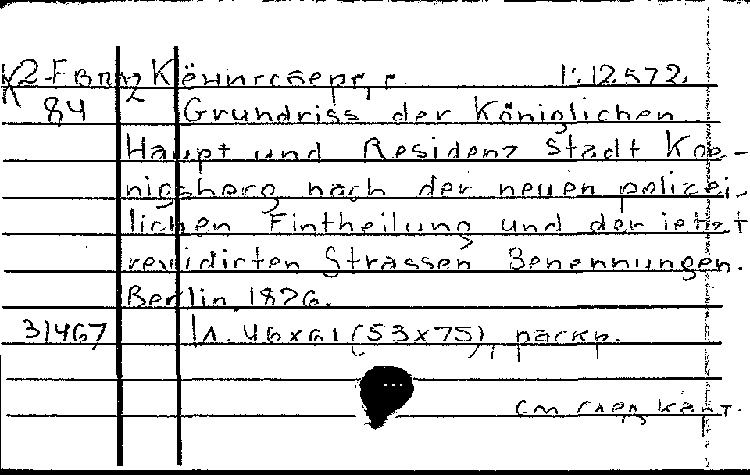 К2-Герм Кёнигсберг, г. 1:12.572.
84 Grundriss der Königlichen
Haupt und Residenz Stadt Koe-
nigsberg nach der neuen polizei-
lichen Eintheilung und der ietzt
revidirten Strassen Benennungen.
Berlin, 1826.
31467 1л. 46х61 (53х75), раскр.
см след карт.